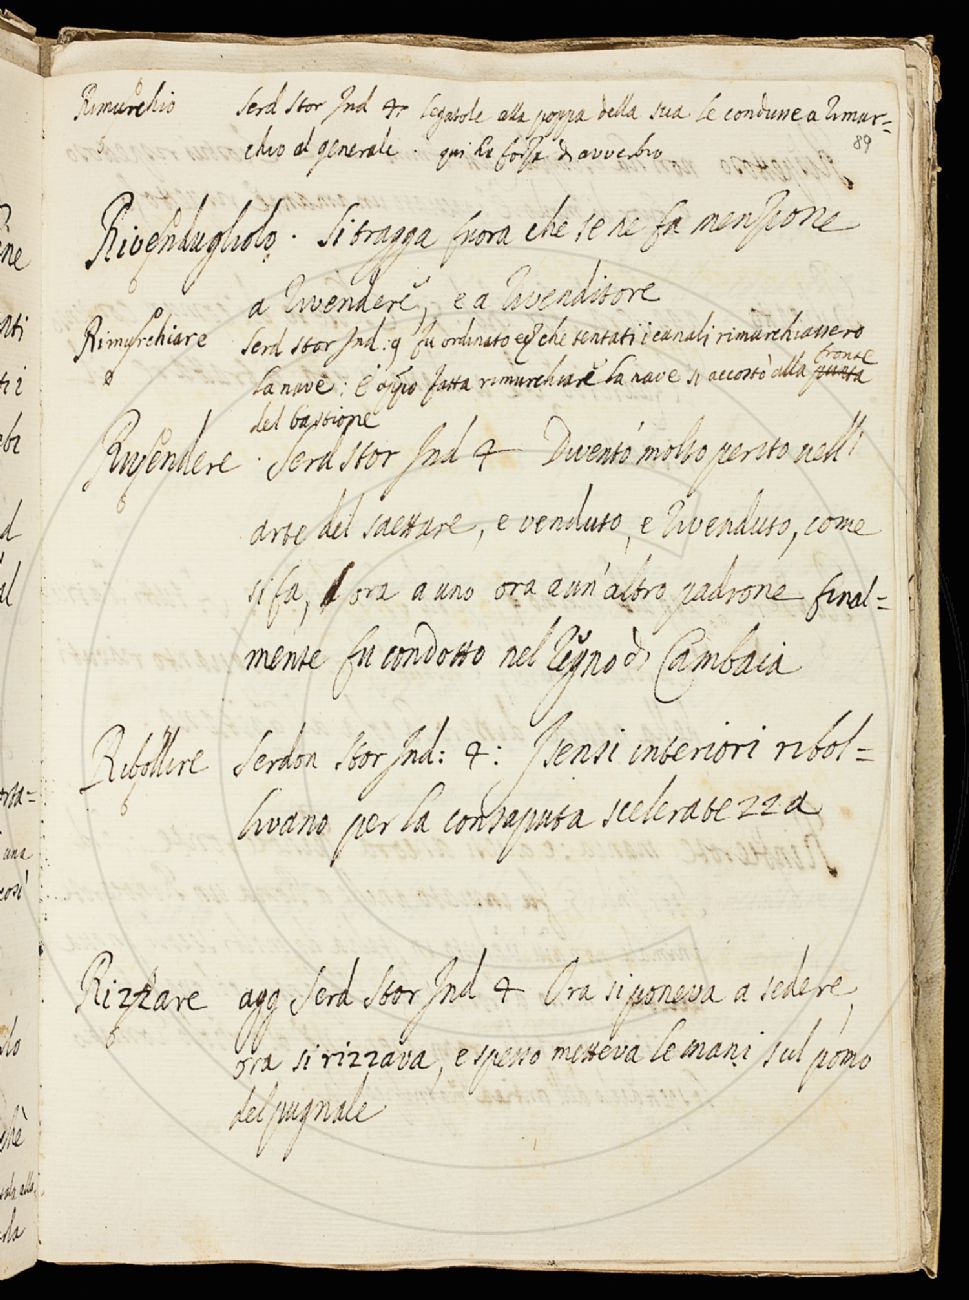 Rimurchio Serd Stor Ind 4 legatole alla poppa della sua le condusse a rimur=
chio al generale. qui ha forza d'avverbio
89
Rivendugliolo. Si tragga fuora che se ne fa menzione
a Rivendere, e a Rivenditore
Rimurchiare Serd Stor Ind: 9 fu ordinato che tentati i canali rimurchiassero
la nave: E fatta rimurchiare la nave si accostò alla punta fronte
del bastione
Rivendere. Serd Stor Ind 4 Diventò molto perito nell'
arte del saettare, e venduto, e rivenduto, come
si fa, ora a uno ora a un'altro padrone final=
mente fu condotto nel Regno di Cambaia
Ribollire Serdon Stor Ind: 4: I sensi interiori ribol=
livano per la consaputa sceleratezza
Rizzare agg Serd Stor Ind 4 Ora si poneva a sedere,
ora si rizzava, e spesso metteva le mani sul pomo
del pugnale